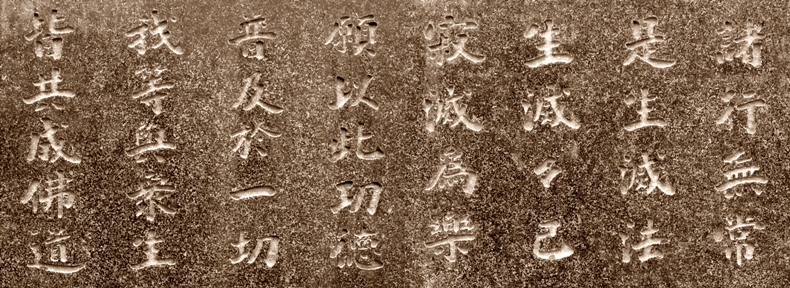 諸行無常
是生滅法
生滅々已
寂滅為樂
願以此功徳
普及於一切
我等與衆生
皆共成佛道